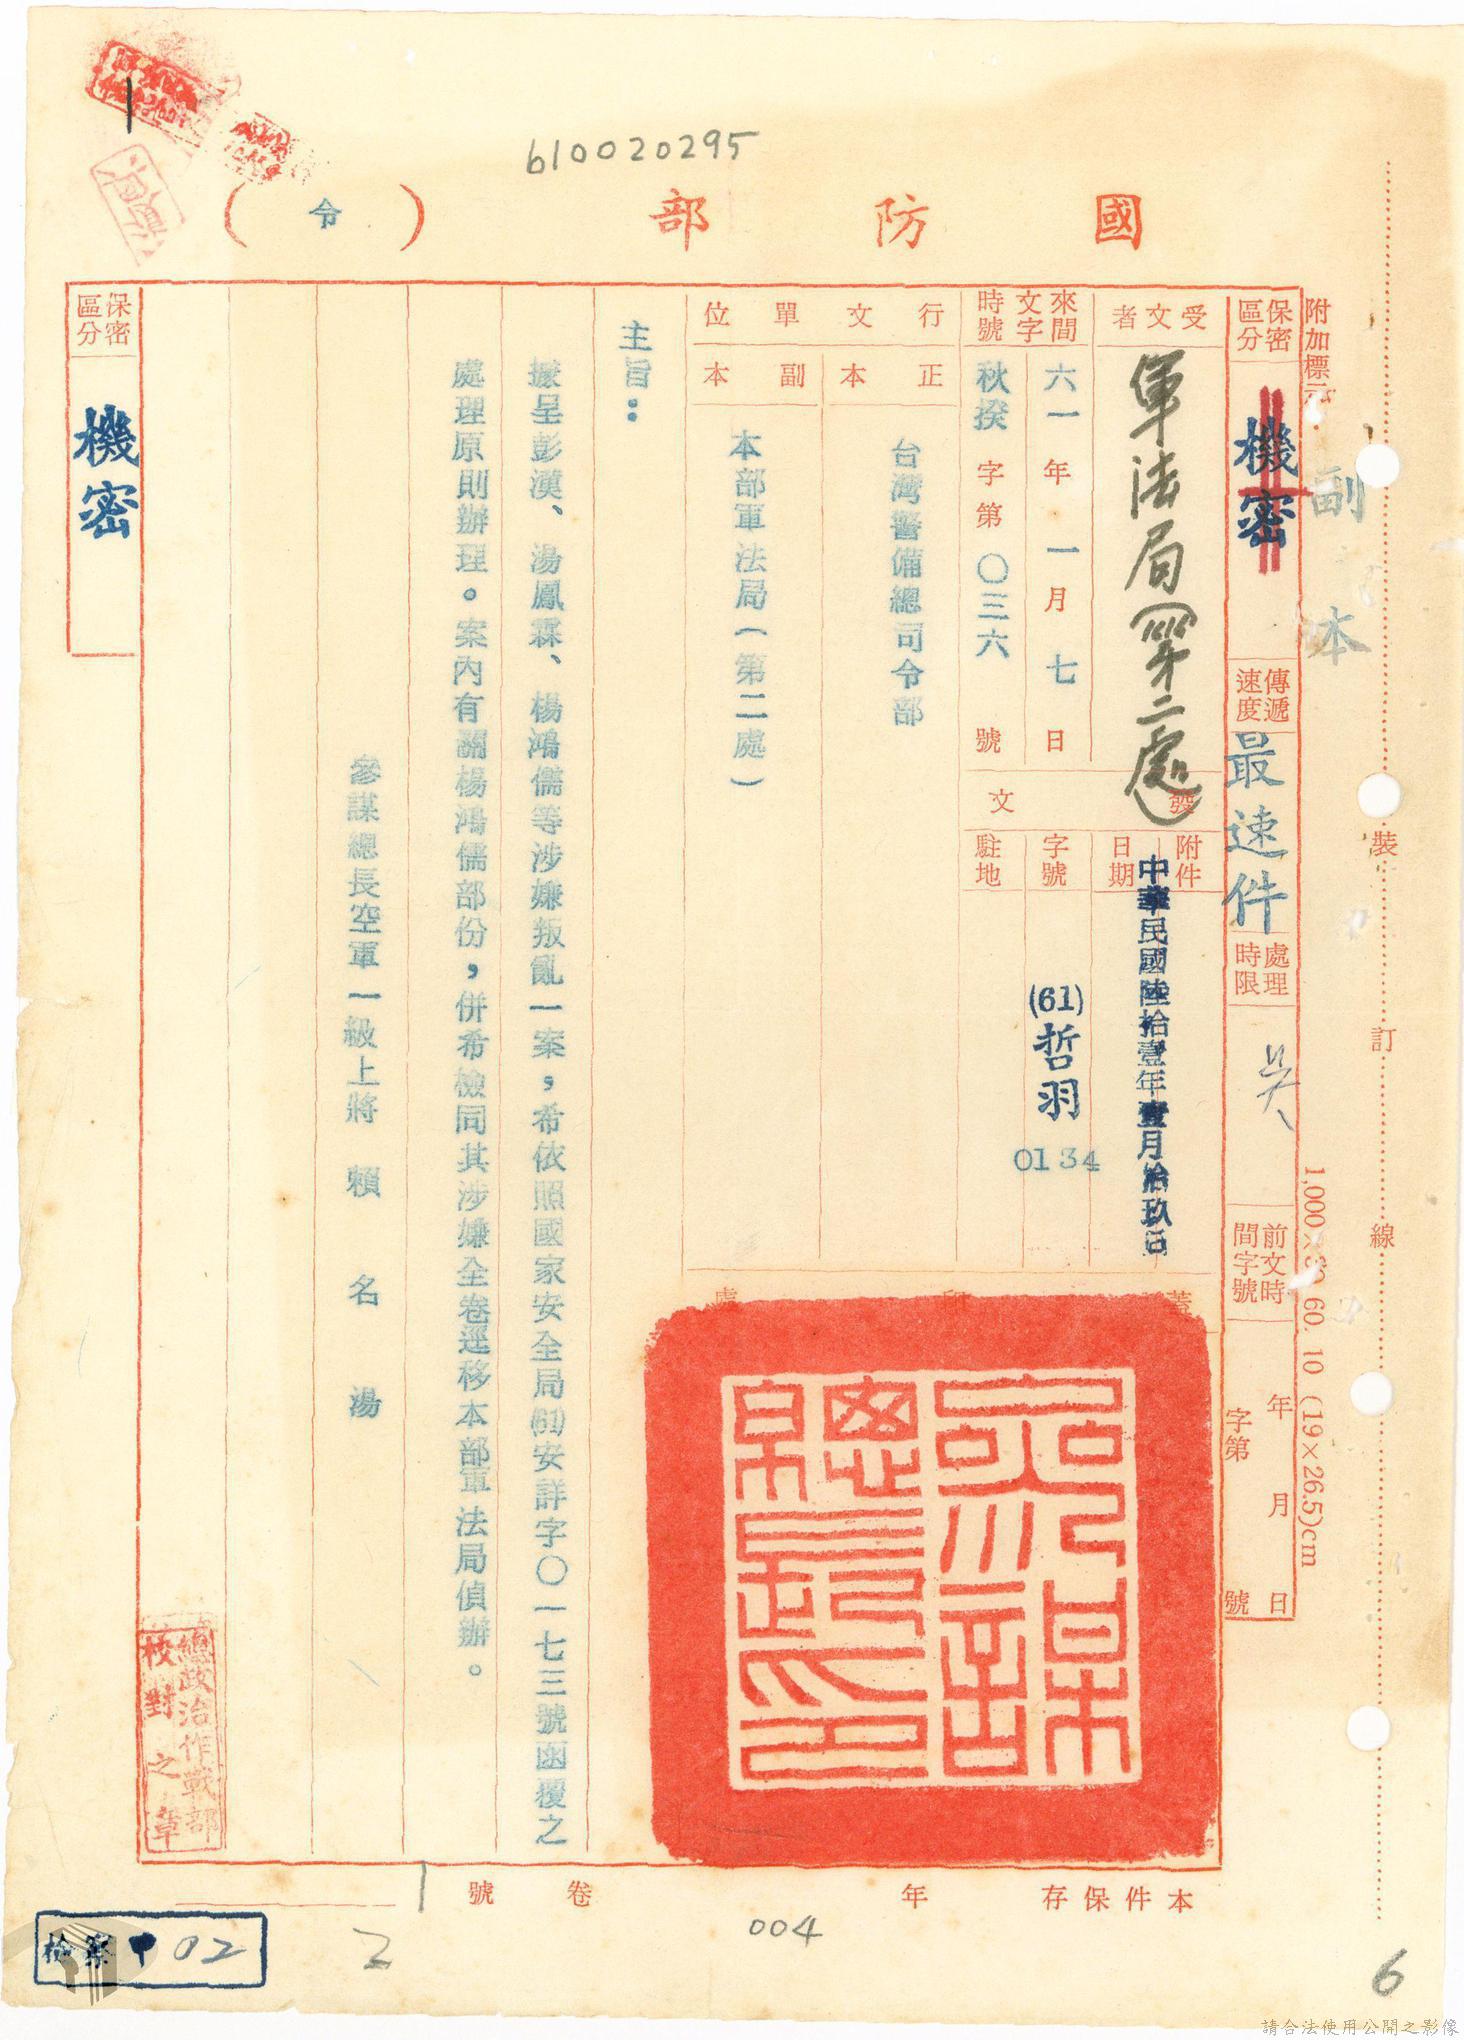 610020295
國防部
（令）
附加標示
副本
保密區分
機密
傳遞速度
最速件
處理時限
吳
前文時間字號
年月日
字第
號
受文者
軍法局（第二處）
來文時間字號
六一年一月七日
秋揆字第〇三六號
發文
附件
日期
中華民國陸拾壹年壹月拾玖日
字號
(61)哲羽
0134
駐地
蓋印處
行文單位
正本
台灣警備總司令部
副本
本部軍法局（第二處）
主旨：
據呈彭漢、湯鳳霖、楊鴻儒等涉嫌叛亂一案，希依照國家安全局(61)安詳字〇一七三號函覆之
處理原則辦理。案內有關楊鴻儒部份，併希檢同其涉嫌全卷逕移本部軍法局偵辦。
參謀總長空軍一級上將 賴名湯
參謀總長印
保密區分
機密
總政治作戰部
校對之章
裝訂線
1,000×30 60. 10 (19×26.5)cm
本件保存 年
卷 號
004
2
6
檢察 02
請合法使用公開之影像